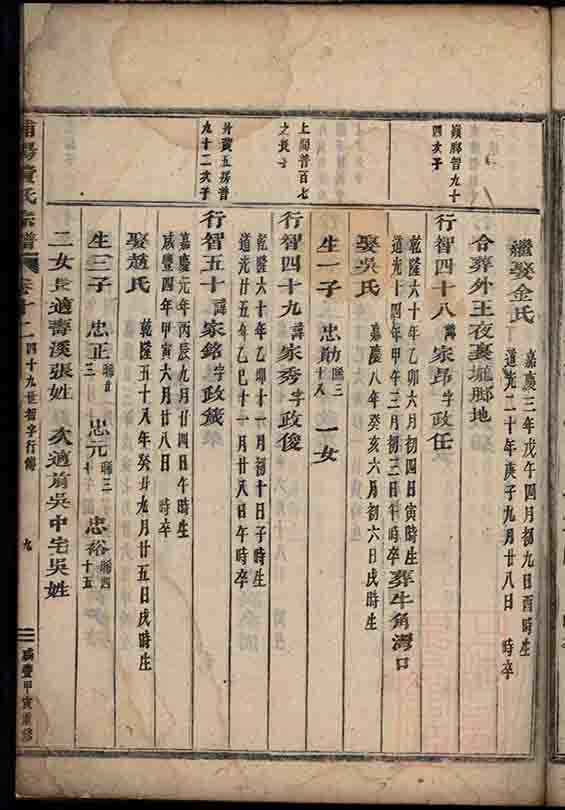 繼娶金氏
嘉慶三年戊午四月初九日酉時生
道光二十年庚子九月廿八日 時卒
合葬外王夜裏塘腳地
九十
四次子
行智四十八 諱 家昂 字 政任
乾隆六十年乙卯六月初四日寅時生
道光十四年甲午三月初三日午時卒 葬牛角灣口
娶吳氏 嘉慶八年癸亥六月初六日戌時生
生一子 忠勛 十八 一女
上
之長子
行智四十九 諱 家秀 字 政俊
乾隆六十年乙卯十一月初十日子時生
道光廿五年乙巳十一月廿八日午時卒
五房普
九十二次子
行智五十 諱 家銘 字 政箴
嘉慶元年丙辰九月廿四日午時生
咸豐四年甲寅六月廿八日 時卒
娶趙氏 乾隆五十八年癸丑九月廿五日戌時生
生三子 忠正 忠元 忠裕
二女 長適壽溪張姓 次適前吳中宅吳姓
費氏宗譜 卷十二 四十九世智字行傳 九 咸豐甲寅重修